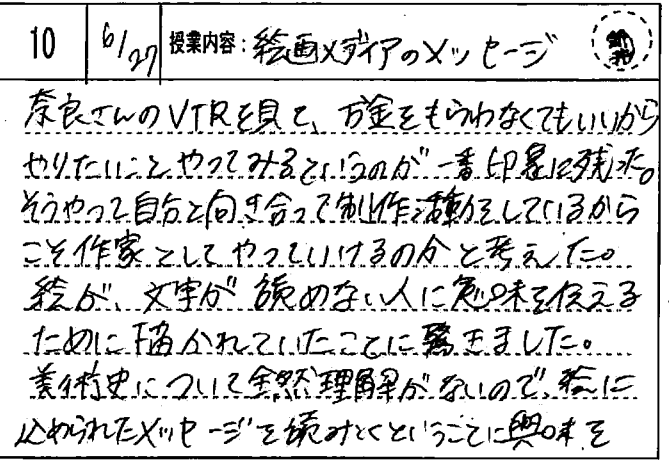 10 6/27 授業内容：絵画メディアのメッセージ
奈良さんのVTRを見て、お金をもらわなくてもいいから
やりたいことやってみるというのが一番印象に残った。
そうやって自分と向き合って制作活動をしているから
こそ作家としてやっていけるのかと考えた。
絵が、文字が読めない人に意味を伝える
ために描かれていたことに驚きました。
美術史について全然理解がないので、絵に
込められたメッセージを読みとくということに興味を